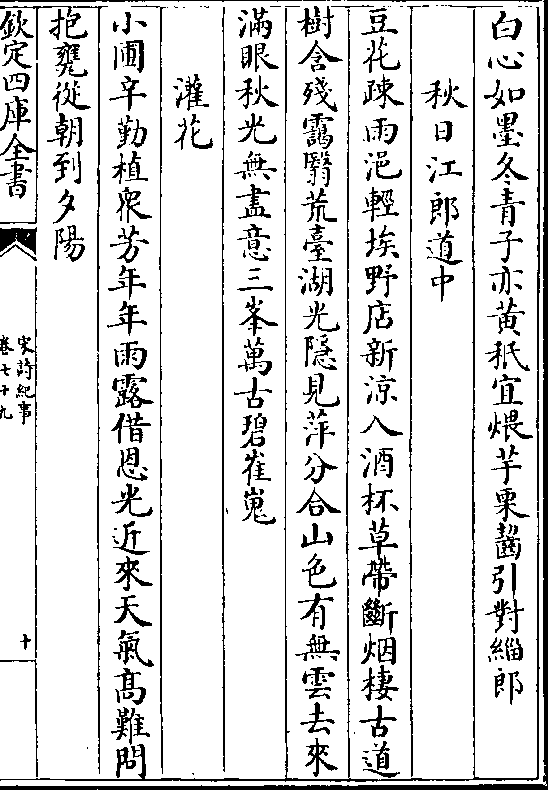 白心如墨冬青子亦黃秖宜煨芋栗齧引對緇郎
秋日江郎道中
豆花疎雨浥輕埃野店新涼入酒杯草帶斷烟棲古道
樹含殘靄翳荒臺湖光隱見萍分合山色有無雲去來
滿眼秋光無盡意三峯萬古碧崔嵬
灌花
小圃辛勤植衆芳年年雨露借恩光近來天氣髙難問
抱甕從朝到夕陽
欽定四庫全書
宋詩紀事
卷七十九
十